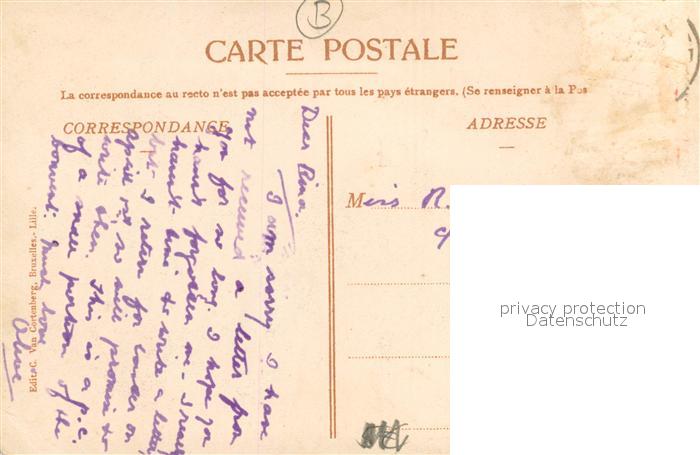 B
CARTE POSTALE
La correspondance au recto n'est pas acceptée par tous les pays étrangers. (Se renseigner à la Pos
CORRESPONDANCE
ADRESSE
Dear Rina.
I am sorry I have
not received a letter from
you for so long. I hope you
havnt forgotten me - I really
havnt time to write a letter
but I return for London on
April 1st so will promise to
write then. This is a p.c.
of a small portion of the
convent. Much love
Olive
Miss R.
Edit. C. Van Cortenberg, Bruxelles.- Lille.
privacy protection
Datenschutz